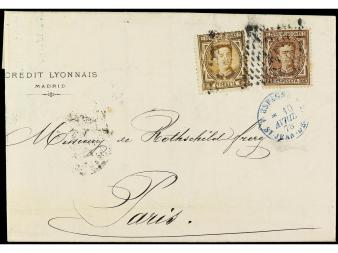 CREDIT LYONNAIS
MADRID
ESPAGNE
10
AVRIL
76
Messieurs de Rothschild frères
Paris.